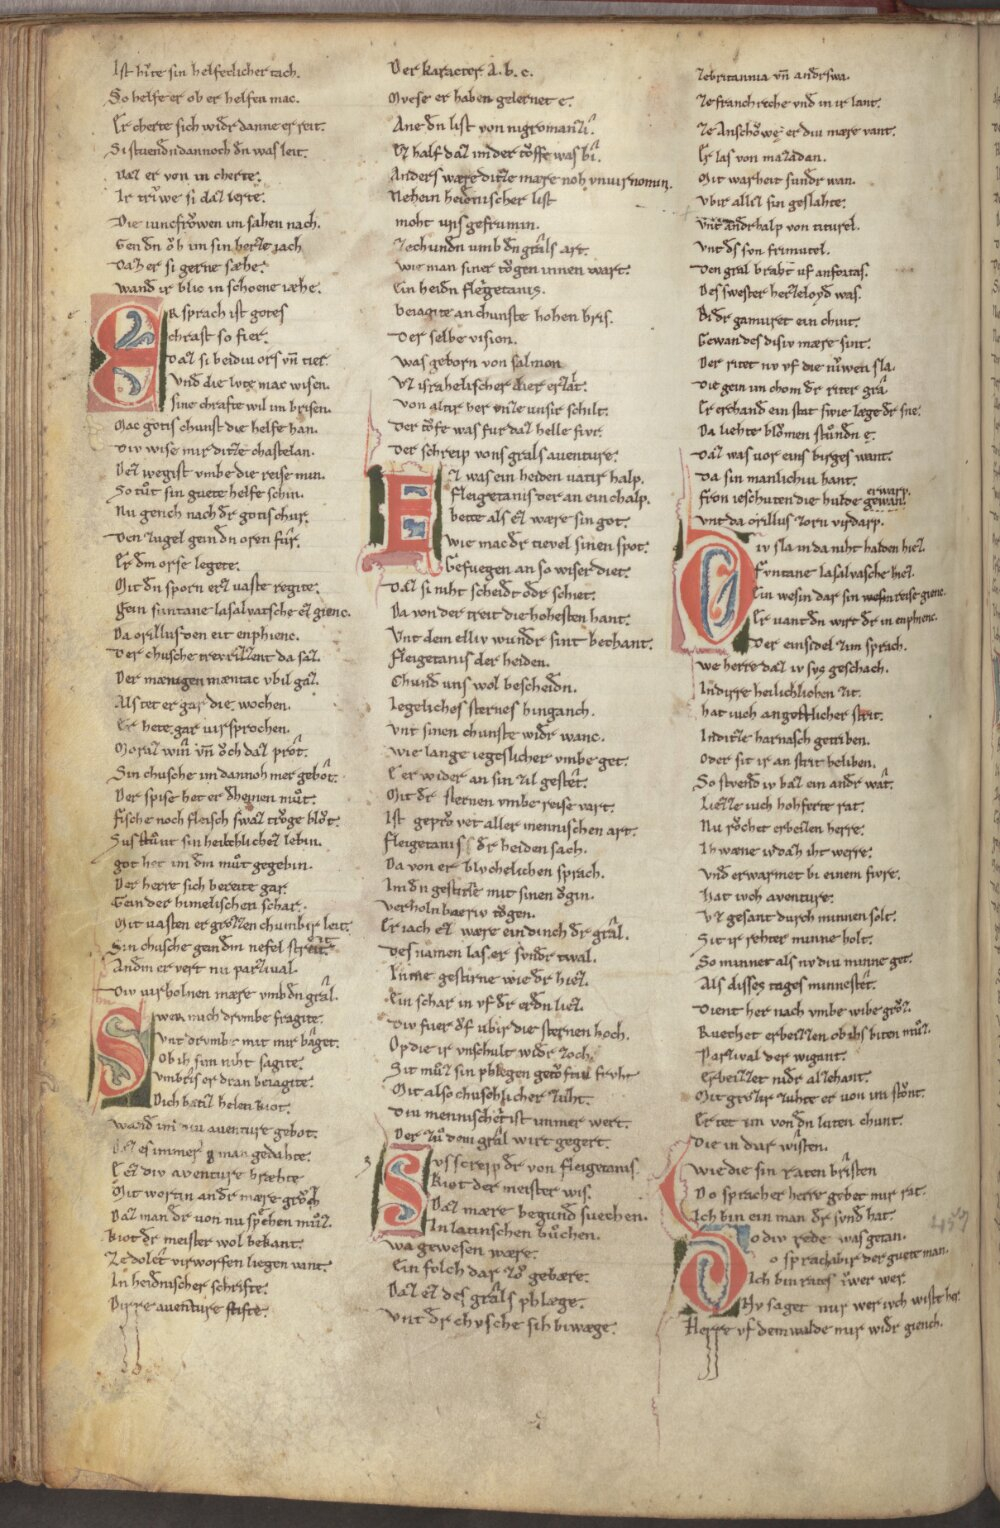 Ist hv̂te sin helfeclicher tach.
So helfe er ob er helfen mac.
Er cherte sich widr danne er reit.
Si stvendn dannoch dn was leit.
Daz er von in cherte.
Ir triwe si daz lerte.
Die iuncfrowen im sahen nach.
Gen dn oh im sin herze iach
Daz er si gerne sæhe.
wand ir blic in schoene iæhe.
ER sprach ist gotes
chrast so fier.
Daz si beidiu ors vn tier
Vnd die lvte mac wisen.
sine chrafte wil im brisen.
Mac gotis chunst die helfe han.
Div wise mir ditze chastelan.
Dez wegist vmbe die reise min.
So tut sin guete helfe schin.
Nu gench nach dr gotis chur.
Den zugel gein dn oren fur.
Er dm orse legete.
Mit dn sporn erz uaste regite.
Gein funtane lasaluatsche ez gienc.
Da orillus den eit enphienc.
Der chusche trevrizzent da saz.
Der mænigen mæntac vbil gaz.
Als tet er gar die wochen.
Er hete gar virsprochen.
Moraz win vn och daz prot.
Sin chusche im dannoh mer gebot.
Der spise het er dheinen mut.
fische noch fleisch swaz troge blot.
Sus stunt sin heilchlichez lebin.
got het im dm mut gegebin.
Der herre sich bereite gar.
Gein der himelischen schar.
Mit uasten er grozzen chumbir leit.
Sin chusche gein dm tiefel streit.
An dm er vert nu parzival.
Div virholnen mære vmb dn gral.
Swer mich drvmbe fragite.
Vnt drvmbe mit mir baget.
Ob ih sin niht sagite.
vmbris er dran beiagite.
Mich batiz helen kiot.
wand im div auenture gebot.
Daz es immer man gedahte.
E ez div aventure bræhte
Mit wortin an dr mære groz
Daz man dr von nu spechen muz.
kiot dr meister wol bekant.
Ze dolet virworfen liegen vant.
In heidnischer schrifte.
Dirre auenture stifte.
Der karacter A. b. c.
Mvese er haben gelernet e.
Ane dn list von nigromanzi.
Ez half daz im der toffe was bi.
Anders wære ditze mære noh vnuirnomin.
Nehein heidnischer list
moht uns gefrumin.
Ze chundn umb dn grals art.
wie man siner togen innen wart.
Ein heidn flegetanis.
beiagite an chunste hohen bris.
Der selbe vision.
was geborn von salmon
Vz israhelischer diet erzalt.
Von altir her vnze unsir schilt.
Der tofe was fur daz helle fivr.
Der schreip vons grals auenture.
Ez was ein heiden uatir halp.
fleigetanis der an ein chalp.
bette als ez wære sin got.
wie mac dr tievel sinen spot.
Gefuegen an so wiser diet.
Daz si niht scheidt odr schiet.
Da von der treit die hohesten hant.
Vnt dem elliv wundr sint bechant.
fleigetanis der heiden.
Chund uns wol bescheidn.
Iegeliches sternes hinganch.
Vnt sinen chunste widr wanc.
wie lange iegeslicher vmbe get.
E er wider an sin zil gestet.
Mit dr sternen vmbe reise vart.
Ist geprovet aller mennischen art.
fleigetanis dr heiden sach.
Da von er blvchelichen sprach.
Im dn gestirne mit sinen ogin.
verholnbaeriv togen.
Er iach ez wære ein dinch dr gral.
Des namen las er sundr twal.
In me gestirne wie dr hiez.
Ein schar in vf dr erdn liez.
Div fuer of ubir die sternen hoch.
Op die ir vnschult widr zoch.
Sit muz sin phlegen getoftiu fruht
Mit also chuschlicher zuht.
Div mennischeit ist immer wert.
Der zu dem gral wirt gegert.
Svs screip dr von fleigetanis.
Kiot der meister wis.
Daz mære begund suechen.
In latinschen buchen.
wa gewesen wære.
Ein folch dar zo gebære.
Daz ez des grals phlæge.
Vnt dr chvsche sih biwæge.
Ze britannia vn andrswa.
Ze franchriche vnd in ir lant.
Ze Anschowe er div mære vant.
Er las von mazadan.
Mit warheit sundr wan.
Vbir alliz sin geslahte.
Vnt andrhalp von titurel.
Vnt ds son frimutel.
Den gral braht vf anfortas.
Des swester herzeloyd was.
Bi dr gamuret ein chint.
Gewan des disiv mære sint.
Der ritet nv vf die niwen sla.
Die gein im chom dr riter gra.
Er erchand ein stat swie læge dr sne.
Da liehte blomen stundn e.
Daz was uor eins birges want.
Da sin manlichiu hant.
fron ieschuten die hulde erwarp. gewan.
Vnt da orillus zorn virdarp.
Div sla in da niht halden hiez.
fvntane lasaluasche hiez.
Ein wesin dar sin reise gienc.
Er uant dn wirt dr in enphienc.
Der einsidel zim sprach.
we herre daz iv sys geschach.
In dirre heilichlichen zit.
hat iuch angestlicher strit.
In ditze harnasch getriben.
Oder sit ir an strit beliben.
So stvend iv baz ein andr wat.
Liezze iuch hohferte rat.
Nu rochet erbeizen herre.
Ih wæne iv daz iht werre.
Vnd erwarmet bi einem fivre.
hat ivch aventure.
Vz gesant durch minnen solt.
Sit ir rehter minne holt.
So minnet als nv div minne get.
Als disses tages minne stet.
Dient her nach vmbe wibe groz.
Ruechet erbeizzen ob ihs biten muz.
Parzival der wigant.
Erbeizzet nidr alzehant.
Mit grozir zuhte er von im stont.
Er tet im von dn luten chunt.
Die in dar wisten.
wie die sin raten bristen
Do spracher herre gebet mir rat.
Ich bin ein man dr sund hat.
Do div rede was getan.
o sprach abir der guete man.
Ich bin rates iwer wer.
Nv saget mir wer ivch wiste her.
Herre vf dem walde mir widr giench.